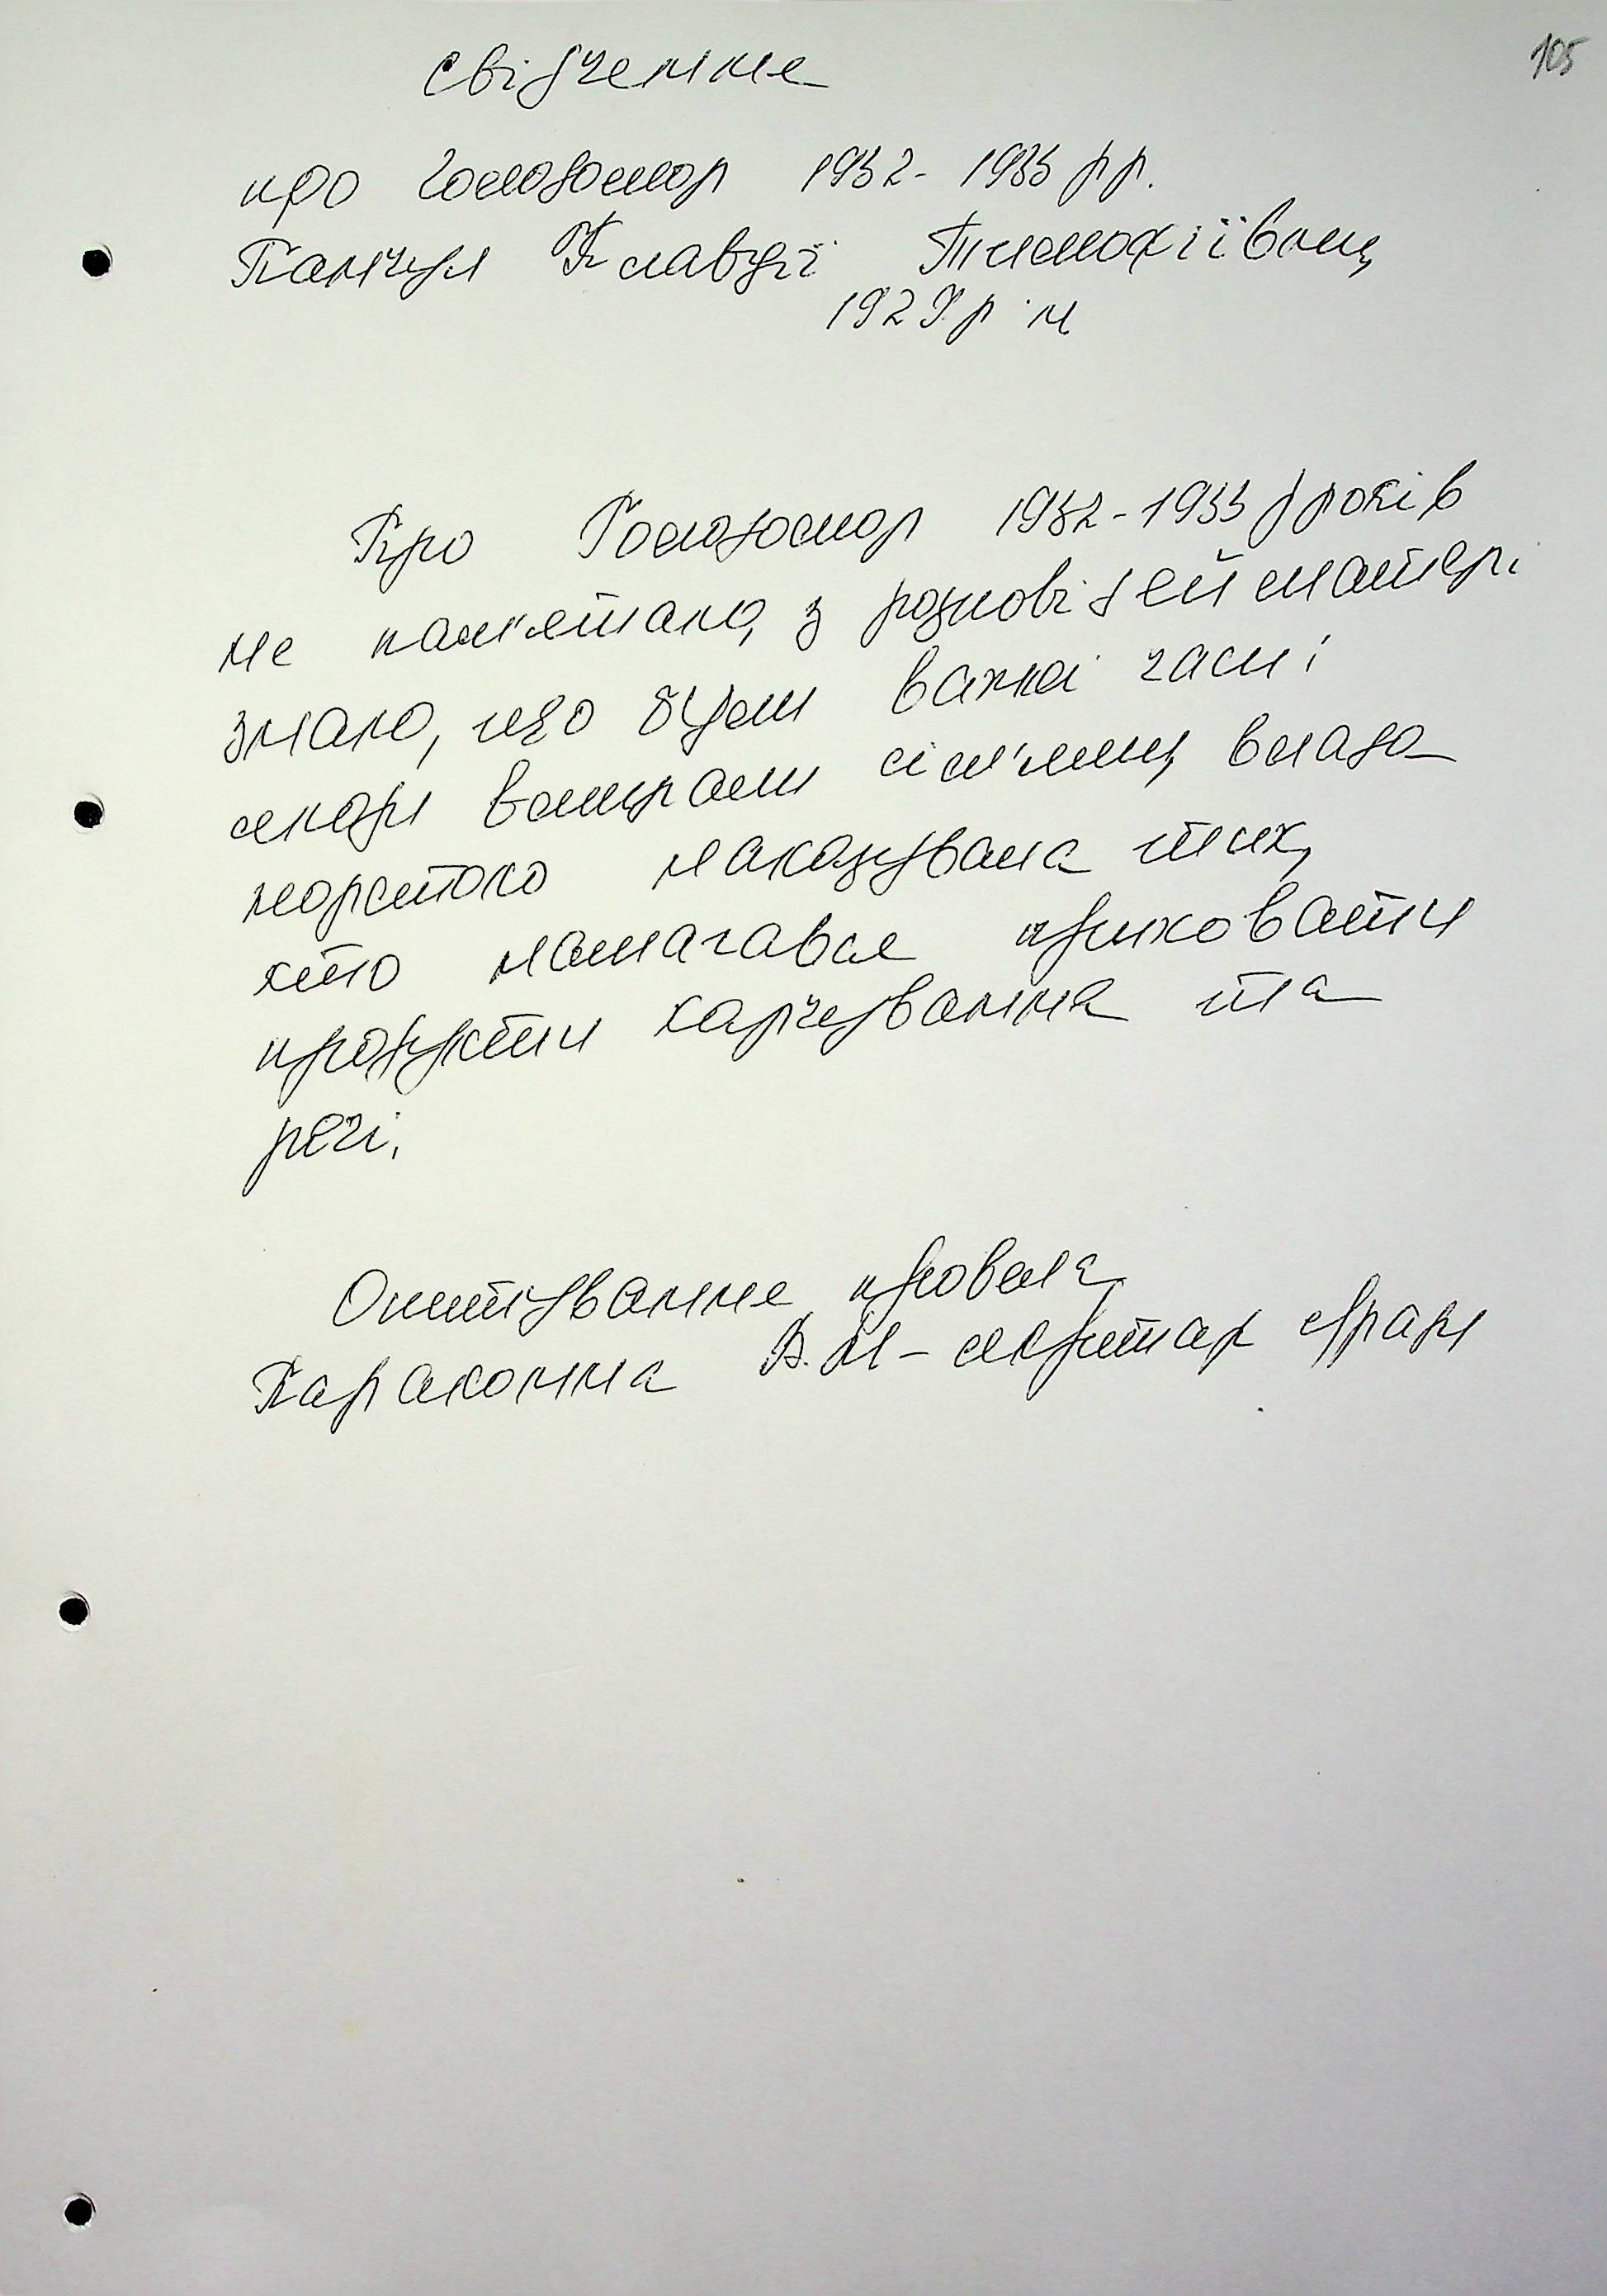 105
Свідчення
про голодомор 1932-1933 рр.
Панчук Клавдії Тимофіївни,
1929 р н
Про Голодомор 1932-1933 років
не пам'ятаю, з розповідей матері
знаю, що були важкі часи і
люди вмирали сім'ями, влада
жорстоко наказувала тих,
хто намагався приховати
продукти харчування та
речі.
Опитування провела
Параконна В.М - секретар с/ради